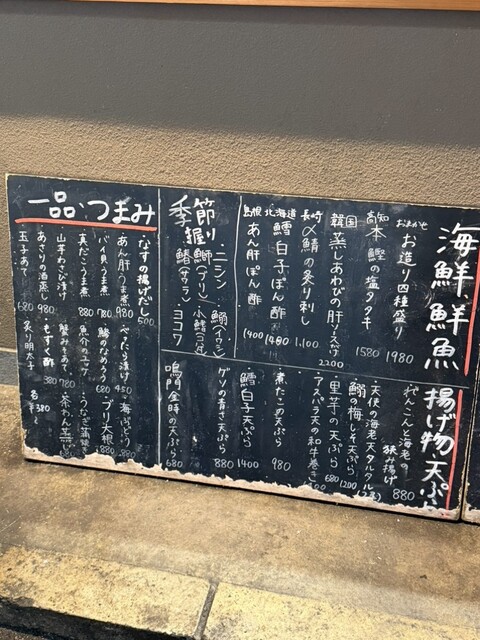 海鮮鮮魚
おまかせ お造り四種盛り 1980
高知 本鰹の塩タタキ 1580
韓国 蒸しあわびの肝ソースがけ 2200
長崎 〆鯖の炙り刺し 1,100
北海道 鱈白子ぽん酢 1480
島根 あん肝ぽん酢 1400
季節 握り
・ニシン・鰯(イワシ)
・鰤(ブリ)・小鰭(コハダ)
・鰆(サワラ)・ヨコワ
揚げ物 天ぷら
れんこんと海老の挟み揚げ 880
天使の海老天タルタル(2本) 1200
鰯の梅しそ天ぷら
里芋の天ぷら 680
アスパラ天の和牛巻き
煮だこの天ぷら 980
鱈白子天ぷら 1400
ゲソの青さ天ぷら 880
鳴門金時の天ぷら 680
一品・つまみ
なすの揚げだし 500
あん肝うま煮 980
バイ貝うま煮 780
真だこうま煮 880
山芋わさび漬け
あさりの酒蒸し 980
玉子あて 680
やったら漬け 450
鯵のなめろう 680
魚介のユッケ
蟹みそあて 780
もずく酢 380
炙り明太子
海ぶどう
ブリ大根 880
うなぎ蒲焼き
茶わん蒸